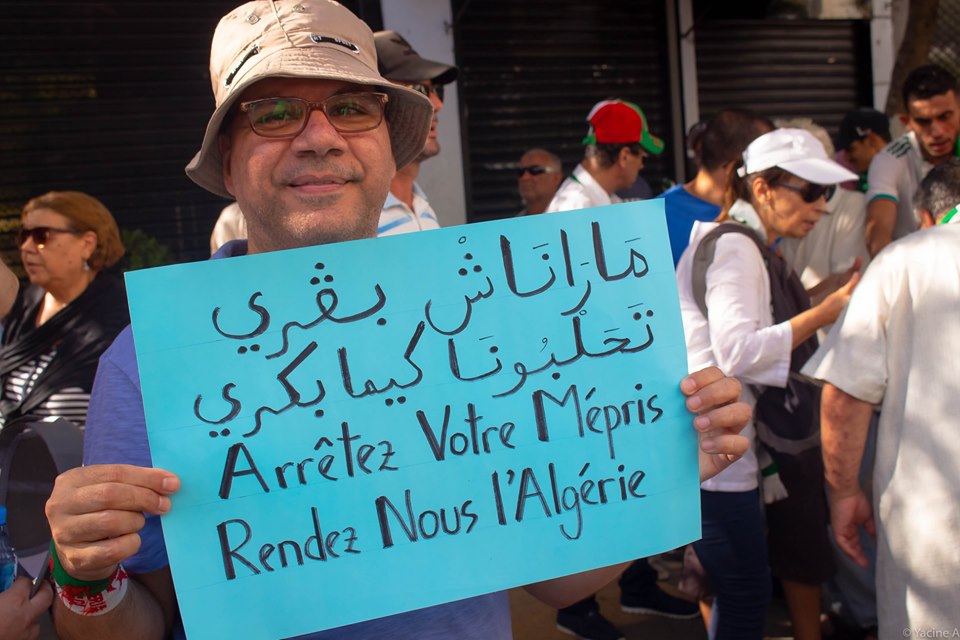 مَارَانَاشْ بڨري
تَحَلْبُونَا كيما بكري
Arrêtez Votre Mépris
Rendez Nous l'Algérie
© Yacine A